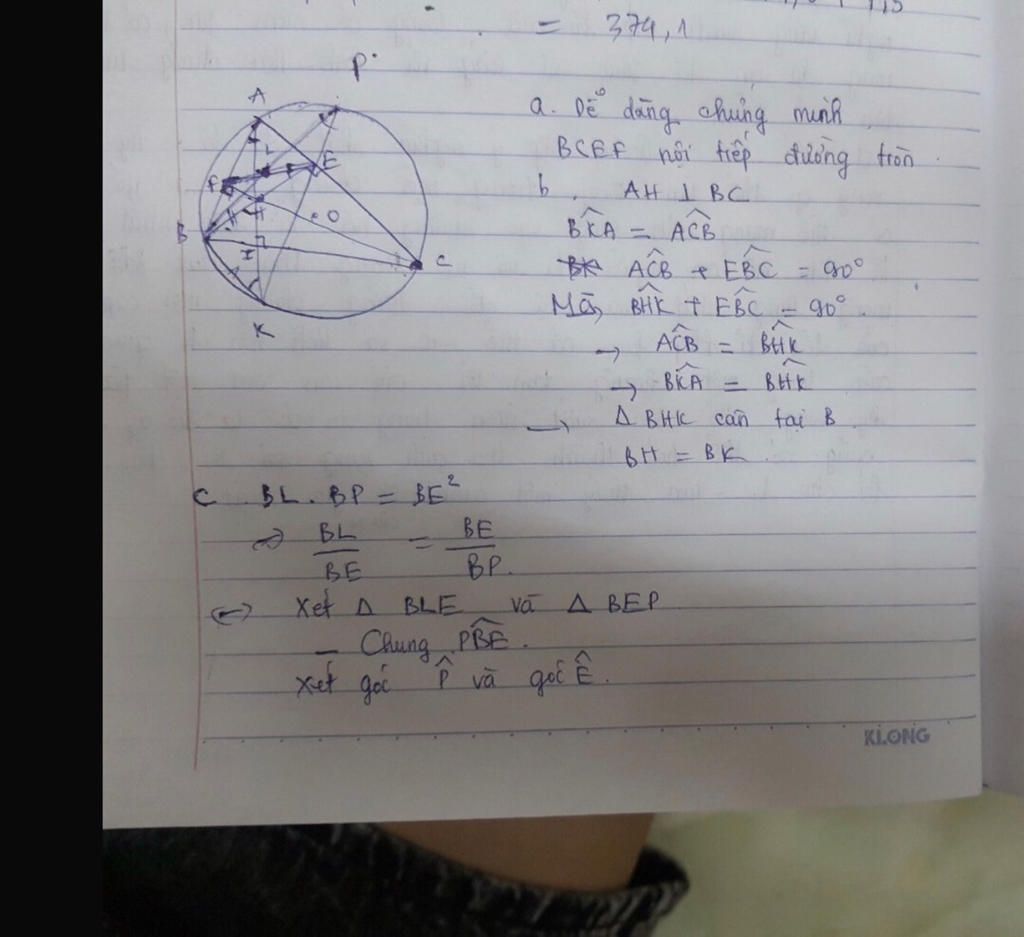 = 374,1
P
A
E
L
F
H
O
B
I
C
K
a. Dễ dàng chứng minh
BCEF nội tiếp đường tròn.
b. AH ⊥ BC
$\widehat{BKA} = \widehat{ACB}$
$\widehat{ACB} + \widehat{EBC} = 90°$
Mà $\widehat{BHK} + \widehat{EBC} = 90°$.
→ $\widehat{ACB} = \widehat{BHK}$
→ $\widehat{BKA} = \widehat{BHK}$
→ Δ BHK cân tại B.
BH = BK.
C. BL . BP = BE²
=> $\frac{BL}{BE} = \frac{BE}{BP}$.
<=> Xét Δ BLE và Δ BEP
– Chung $\widehat{PBE}$.
Xét góc $\hat{P}$ và góc $\hat{E}$.
KLONG